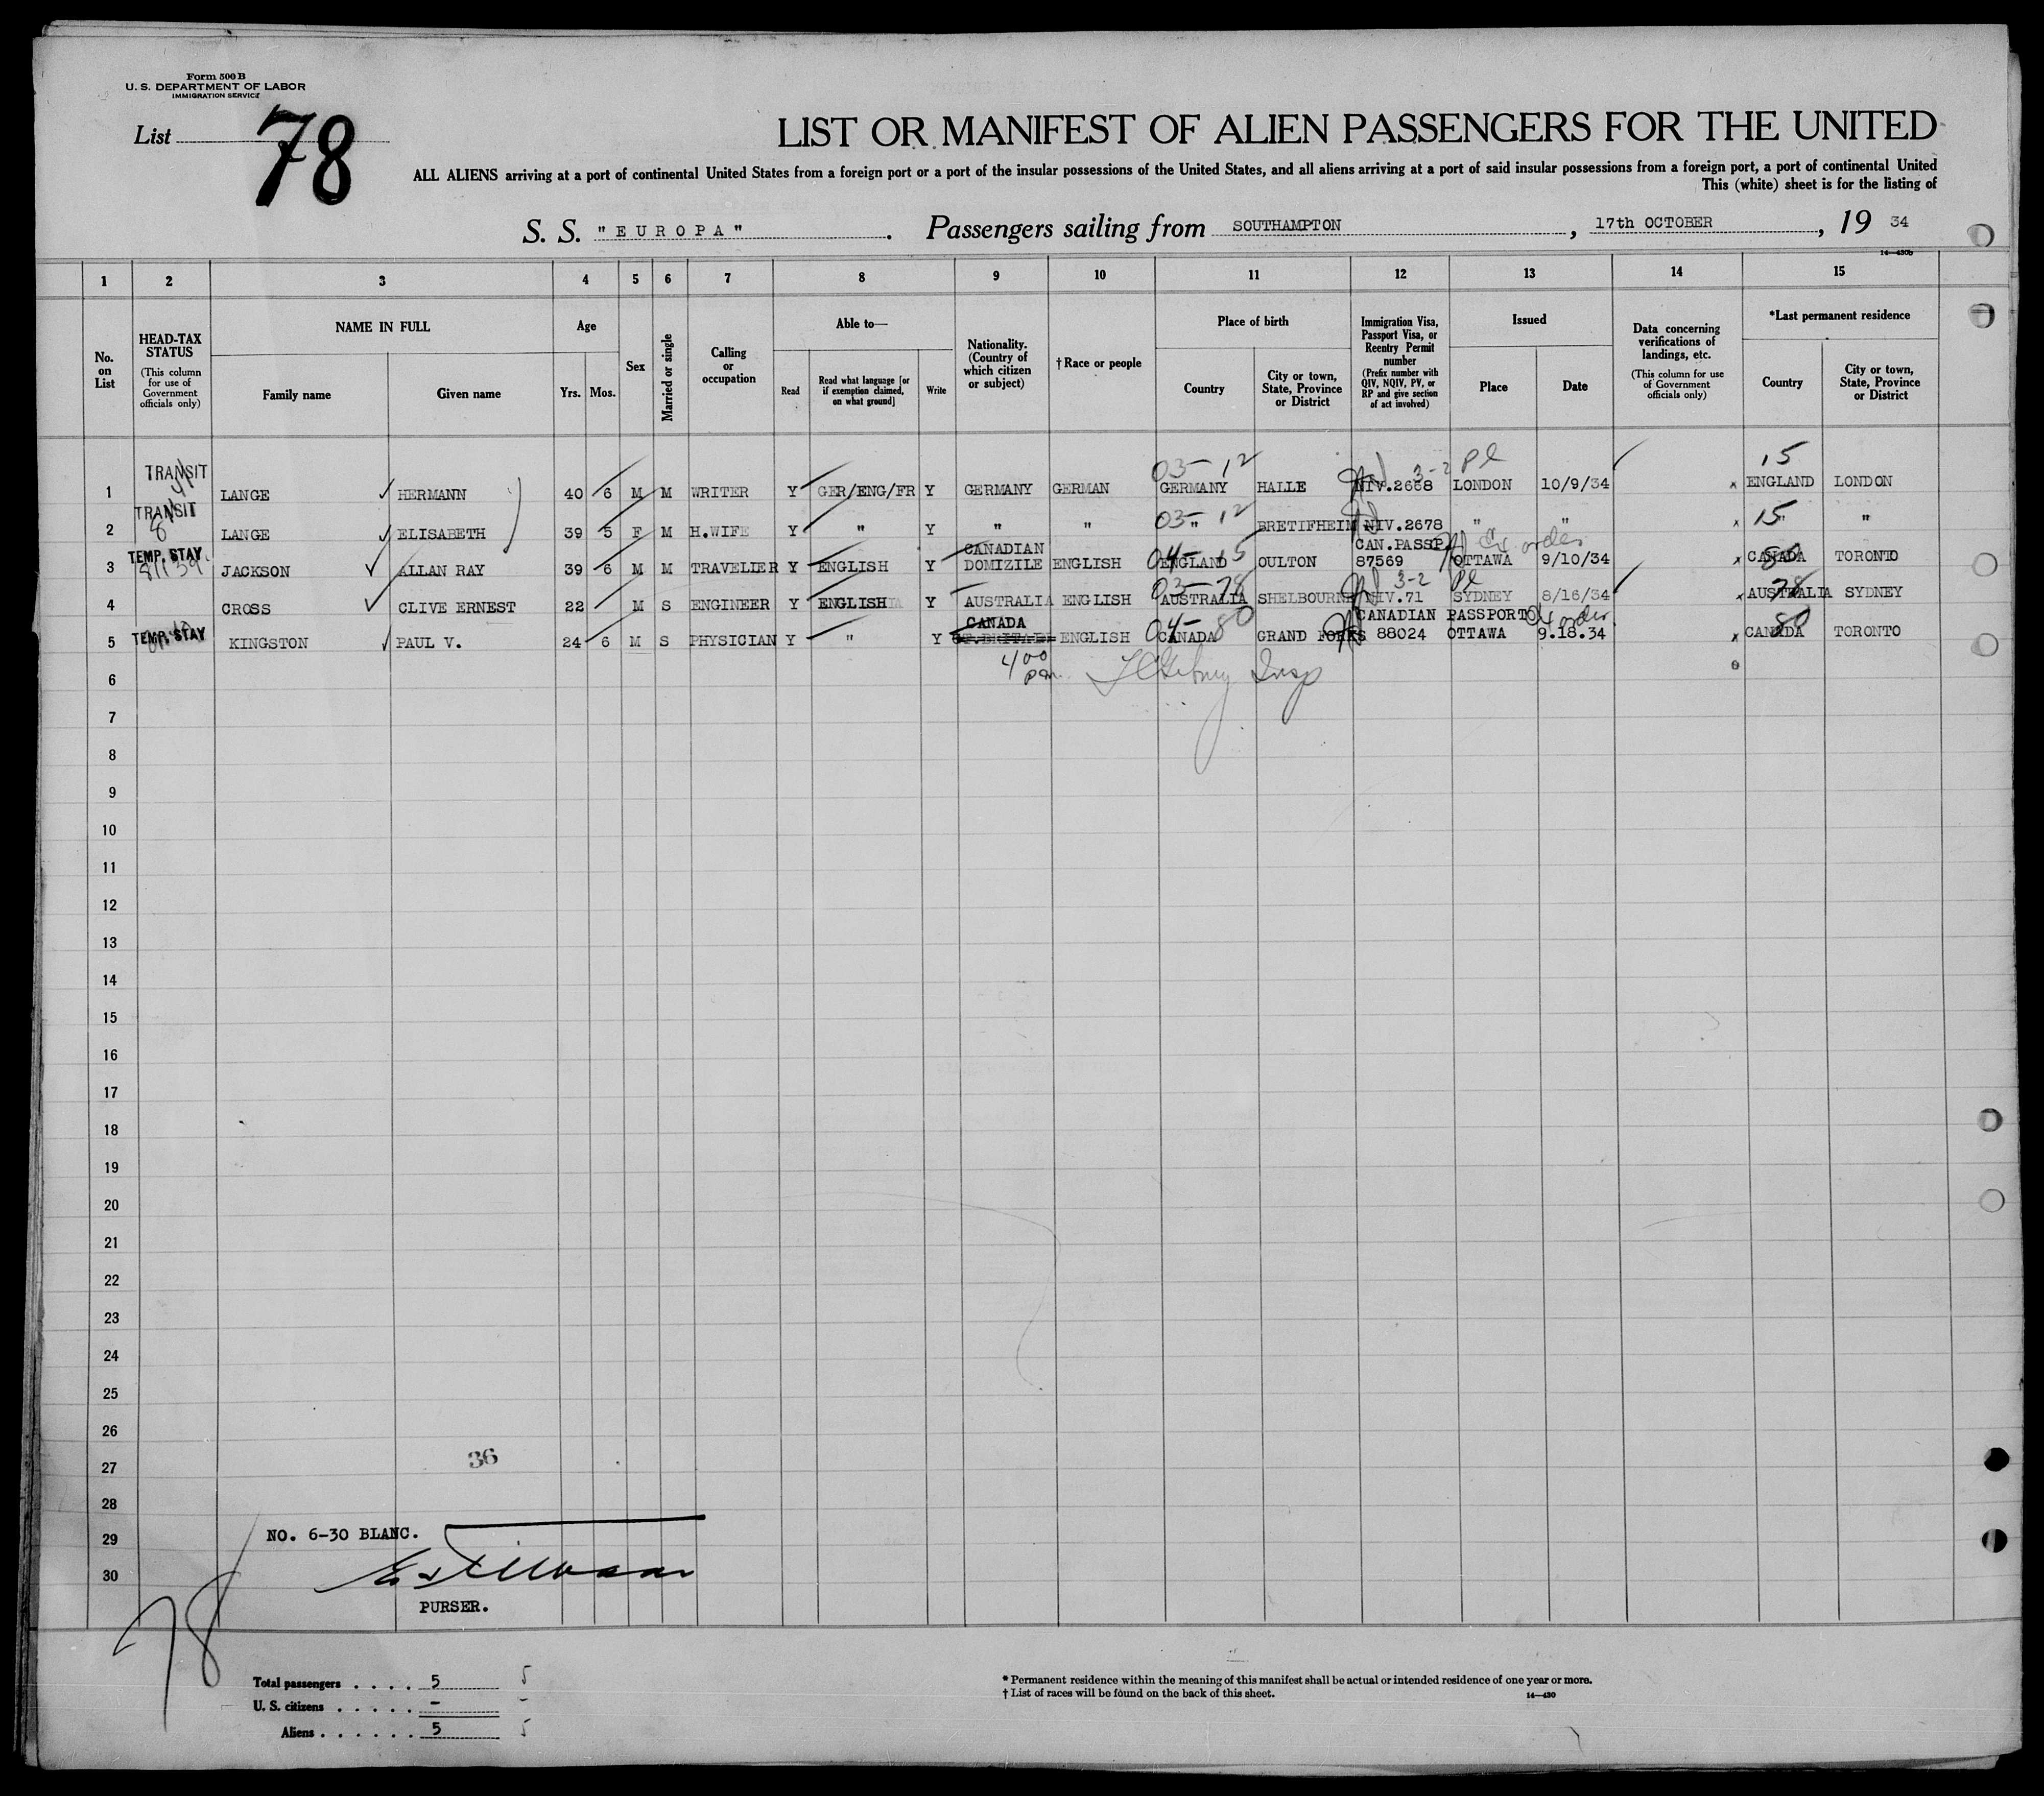 Form 500 B
U. S. DEPARTMENT OF LABOR
IMMIGRATION SERVICE
List 78
LIST OR MANIFEST OF ALIEN PASSENGERS FOR THE UNITED
ALL ALIENS arriving at a port of continental United States from a foreign port or a port of the insular possessions of the United States, and all aliens arriving at a port of said insular possessions from a foreign port, a port of continental United
This (white) sheet is for the listing of
S. S. "EUROPA". Passengers sailing from SOUTHAMPTON, 17th OCTOBER, 19 34
14—430b
1 2 3 4 5 6 7 8 9 10 11 12 13 14 15
No. on List
HEAD-TAX STATUS (This column for use of Government officials only)
NAME IN FULL
Family name Given name
Age
Yrs. Mos.
Sex
Married or single
Calling or occupation
Able to—
Read Read what language [or if exemption claimed, on what ground] Write
Nationality. (Country of which citizen or subject)
† Race or people
Place of birth
Country City or town, State, Province or District
Immigration Visa, Passport Visa, or Reentry Permit number (Prefix number with QIV, NQIV, PV, or RP and give section of act involved)
Issued
Place Date
Data concerning verifications of landings, etc. (This column for use of Government officials only)
*Last permanent residence
Country City or town, State, Province or District
TRANSIT 03-12 3-2 pl 15
1 LANGE HERMANN 40 6 M M WRITER Y GER/ENG/FR Y GERMANY GERMAN GERMANY HALLE NIV.2668 LONDON 10/9/34 x ENGLAND LONDON
TRANSIT 03-12 15
2 LANGE ELISABETH 39 5 F M H.WIFE Y " Y " " " BRETIFHEIM NIV.2678 " " x " "
TEMP. STAY CANADIAN 04-15 CAN.PASSP. Ex order 80
3 JACKSON ALLAN RAY 39 6 M M TRAVELLER Y ENGLISH Y DOMIZILE ENGLISH ENGLAND OULTON 87569 OTTAWA 9/10/34 x CANADA TORONTO
03-78 3-2 pl 78
4 CROSS CLIVE ERNEST 22 M S ENGINEER Y ENGLISH Y AUSTRALIA ENGLISH AUSTRALIA SHELBOURNE NIV.71 SYDNEY 8/16/34 x AUSTRALIA SYDNEY
TEMP. STAY CANADA 04-80 CANADIAN PASSPORT Ex order 80
5 KINGSTON PAUL V. 24 6 M S PHYSICIAN Y " Y ENGLISH CANADA GRAND FORKS 88024 OTTAWA 9.18.34 x CANADA TORONTO
6 4 00 pm Insp
7
8
9
10
11
12
13
14
15
16
17
18
19
20
21
22
23
24
25
26
36
27
28
29 NO. 6-30 BLANC.
30
PURSER.
78
Total passengers . . . . 5 5
U. S. citizens . . . . . – –
Aliens . . . . . . 5 5
* Permanent residence within the meaning of this manifest shall be actual or intended residence of one year or more.
† List of races will be found on the back of this sheet.
14—430